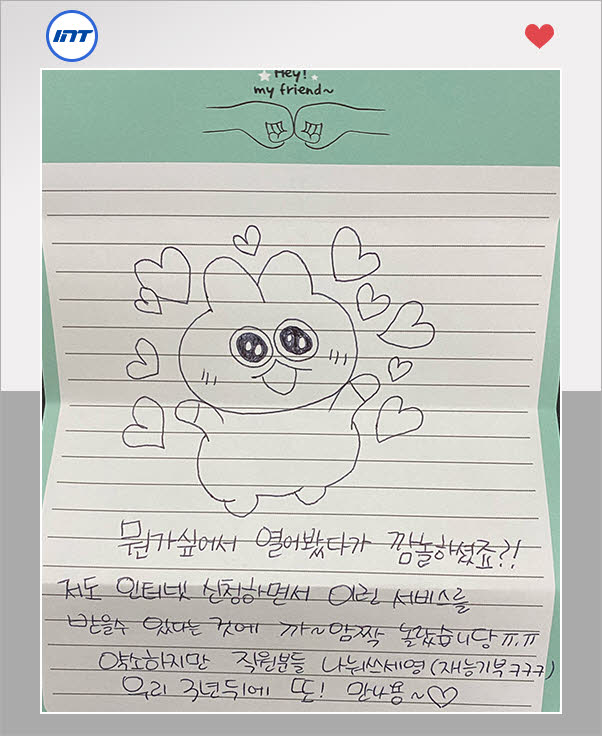 INT
Hey!
my friend~
뭔가싶어서 열어봤다가 깜놀하셨죠?!
저도 인터넷 신청하면서 이런 서비스를
받을수 있다는 것에 까~암짝 놀랐습니당ㅠ.ㅠ
약소하지만 직원분들 나눠쓰세영(재능기부ㅋㅋㅋ)
우리 3년뒤에 또! 만나용~♡